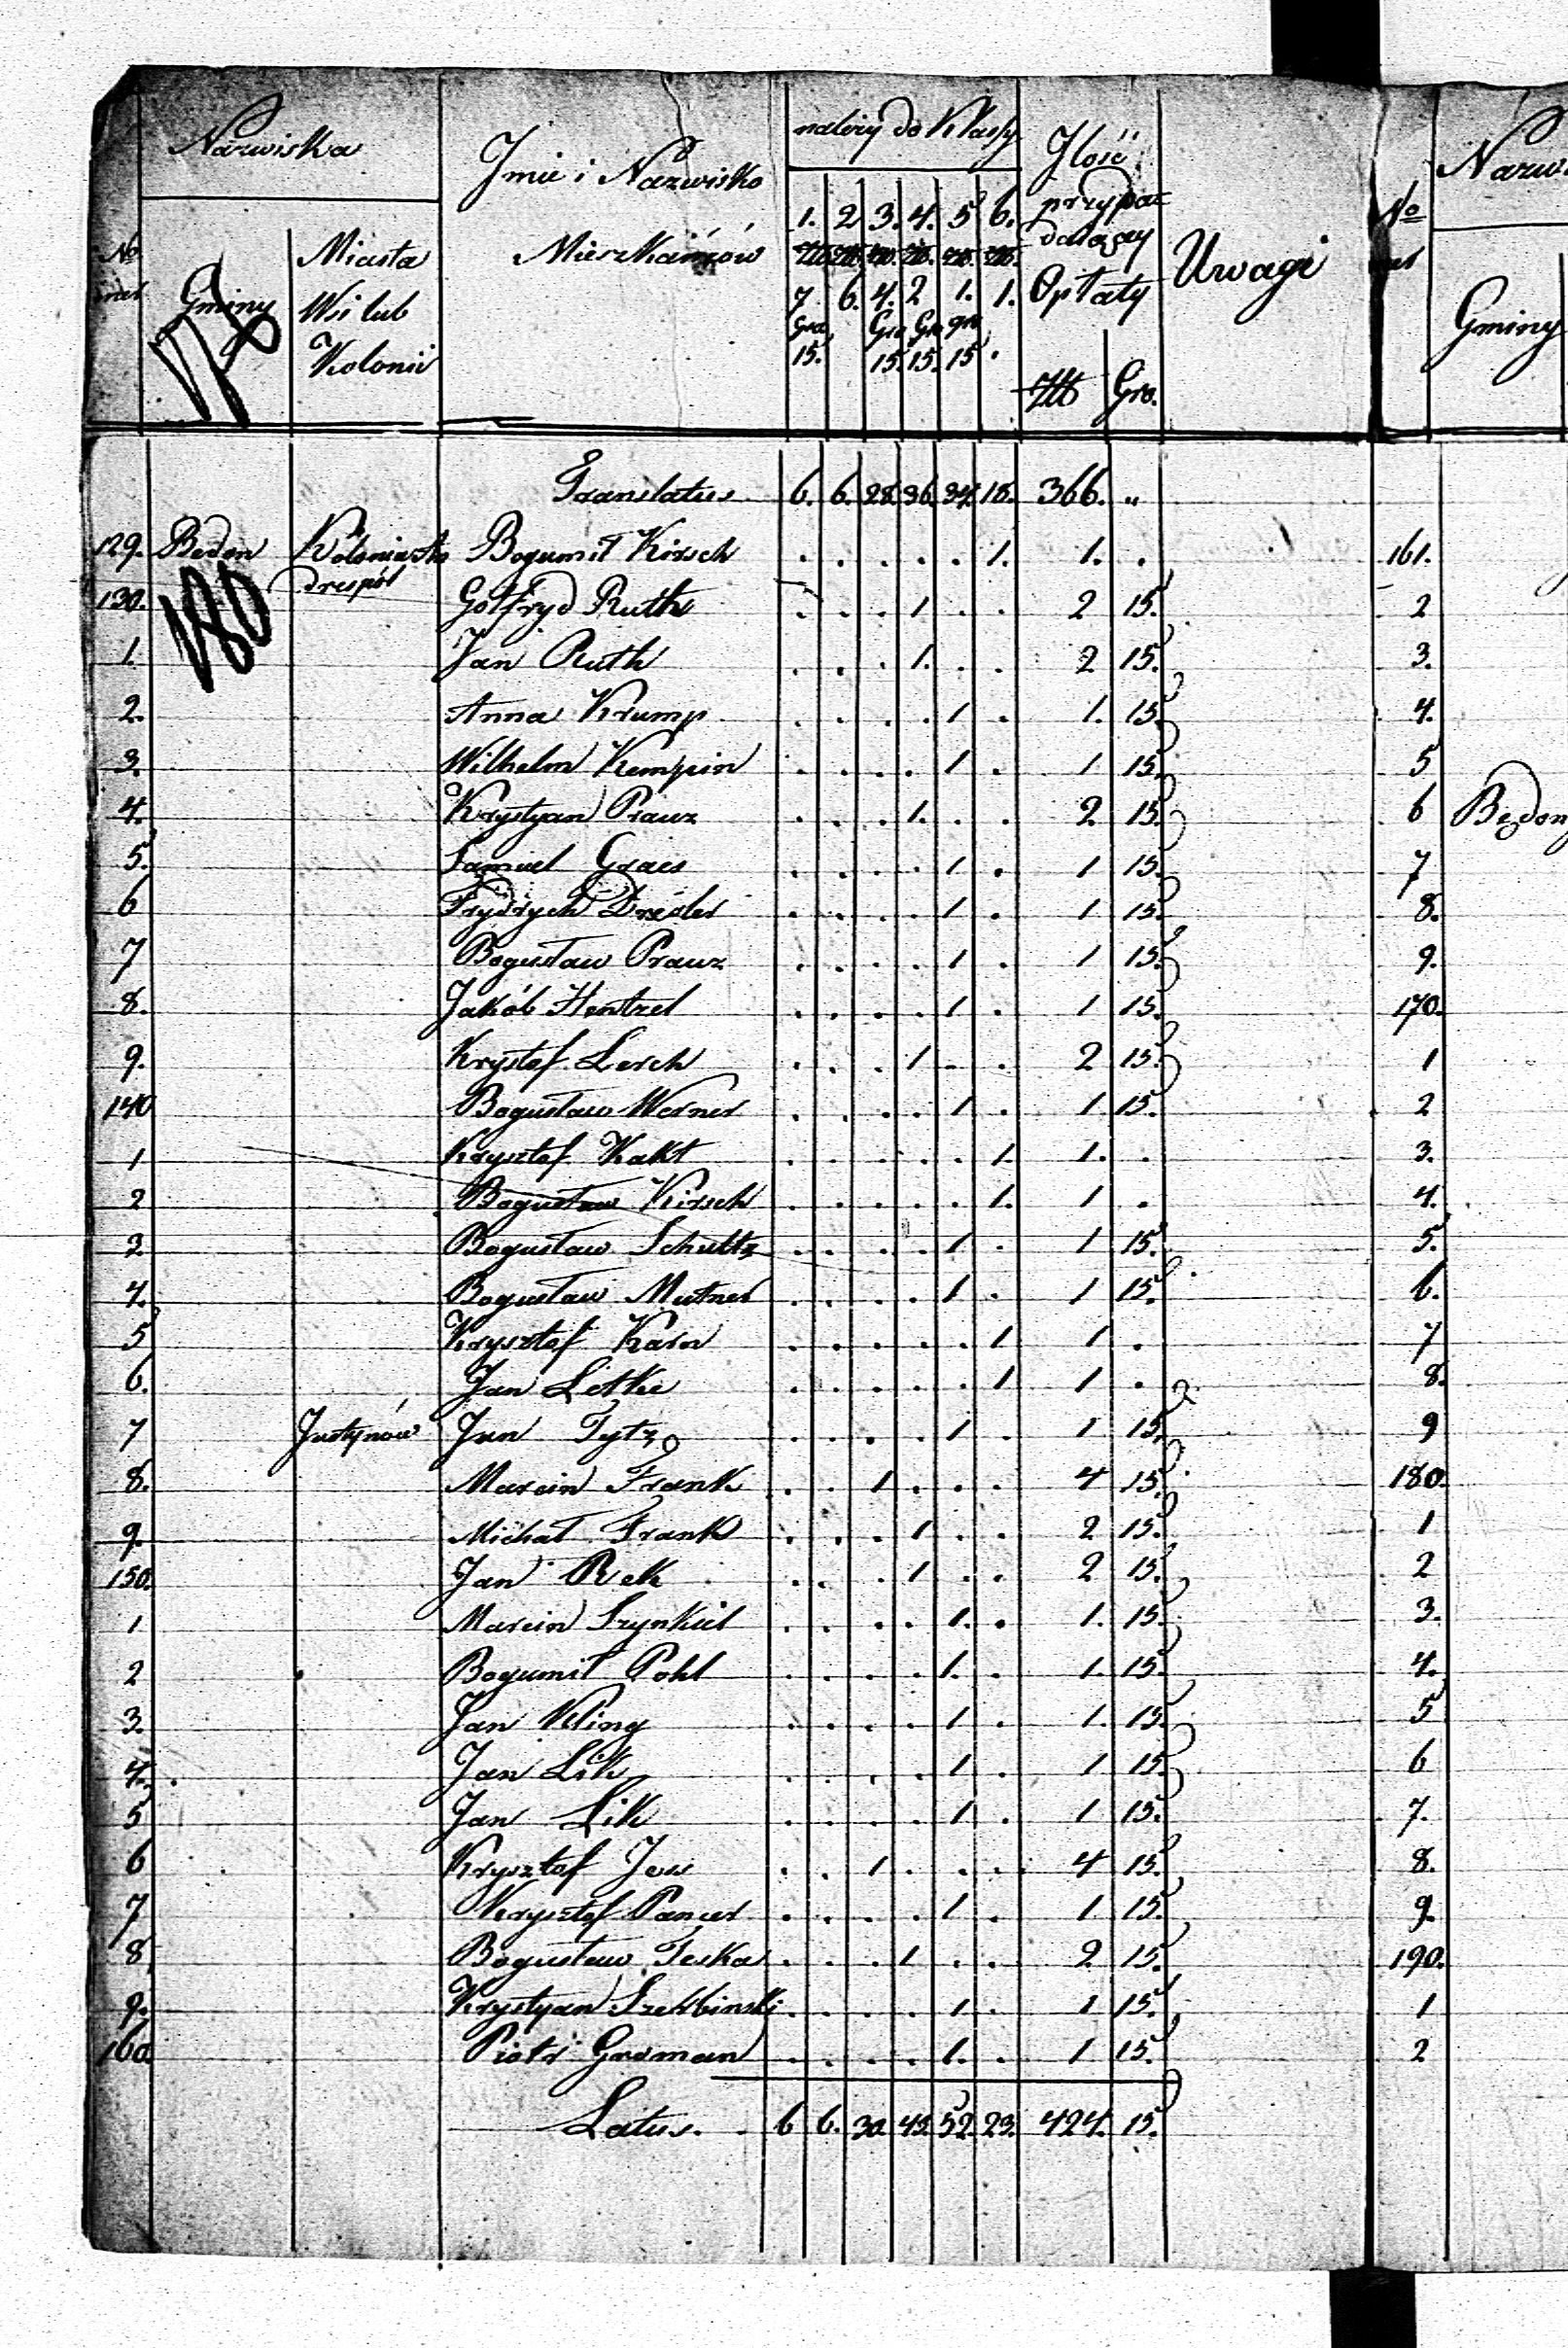 Nazwiska
Jmie i Nazwisko Mieszkańców
należy do Klassy
Jlość przypadaiącey Opłaty
Uwagi
No
Gminy
Miasta Wsi lub Kolonii
1. 2 3. 4. 5 6.
Złt. Złt. Złt. Złt. Złt. Złt.
7 6. 4. 2 1. 1.
Gro Gro Gro gro
15. 15. 15. 15 .
Złt Gro.
Translatus 6. 6. 28. 36. 34. 18. 366. "
129. Bedon Kolonia Andrespól Bogumił Kirsch . . . . . 1. 1. .
180
130. Gotfryd Ruth . . . 1 . . 2 15.
1. Jan Ruth . . . 1. . . 2 15.
2. Anna Krump . . . . 1 . 1. 15.
3. Wilhelm Kempin . . . . 1 . 1 15.
4. Krystyan Prauz . . . 1. . . 2. 15.
5. Samuel Graes . . . . 1 . 1 15.
6 Frydrych Drésler . . . . 1 . 1 15.
7 Bogusław Prauz . . . . 1 . 1 15.
8. Jakób Hentzel . . . . 1 . 1 15.
9. Krysztof Lerch . . . 1 . . 2 15.
140 Bogusław Werner . . . . 1 . 1 15.
1 Krysztof Kakt . . . . . 1. 1. .
2 Bogusław Kirsch . . . . . 1. 1 .
3. Bogusław Schultz . . . . 1 . 1 15.
4. Bogusław Mutner . . . . 1 . 1 15.
5 Krysztof Karn . . . . . 1 1 .
6. Jan Letke . . . . . 1 1 .
7 Justynów Jan Tytz . . . . 1 . 1 15.
8. Marcin Frank . . 1 . . . 4 15.
9. Michał Frank . . . 1 . . 2 15.
150. Jan Rek . . . 1 . . 2 15.
1 Marcin Szynkiel . . . . 1. . 1. 15.
2 Bogumił Pohl . . . . 1. . 1. 15.
3. Jan Kling . . . . 1 . 1. 15.
4. Jan Lik . . . . 1 . 1 15.
5 Jan Lik . . . . 1 . 1 15.
6 Krysztof Jess . . 1 . . . 4 15.
7 Krysztof Pancer . . . . 1 . 1 15.
8 Bogusław Teska . . . 1 . . 2 15.
9. Krystyan Szelbinski . . . . 1 . 1 15.
160. Piotr Groman . . . . 1. . 1 15.
Latus. 6 6. 30. 43. 52. 23. 424. 15.
No
Nazw
Gminy
161.
2
3.
4.
5
6 Bedon
7
8.
9.
170.
1
2
3.
4.
5.
6.
7
8.
9
180.
1
2
3.
4.
5
6
7.
8.
9.
190.
1
2